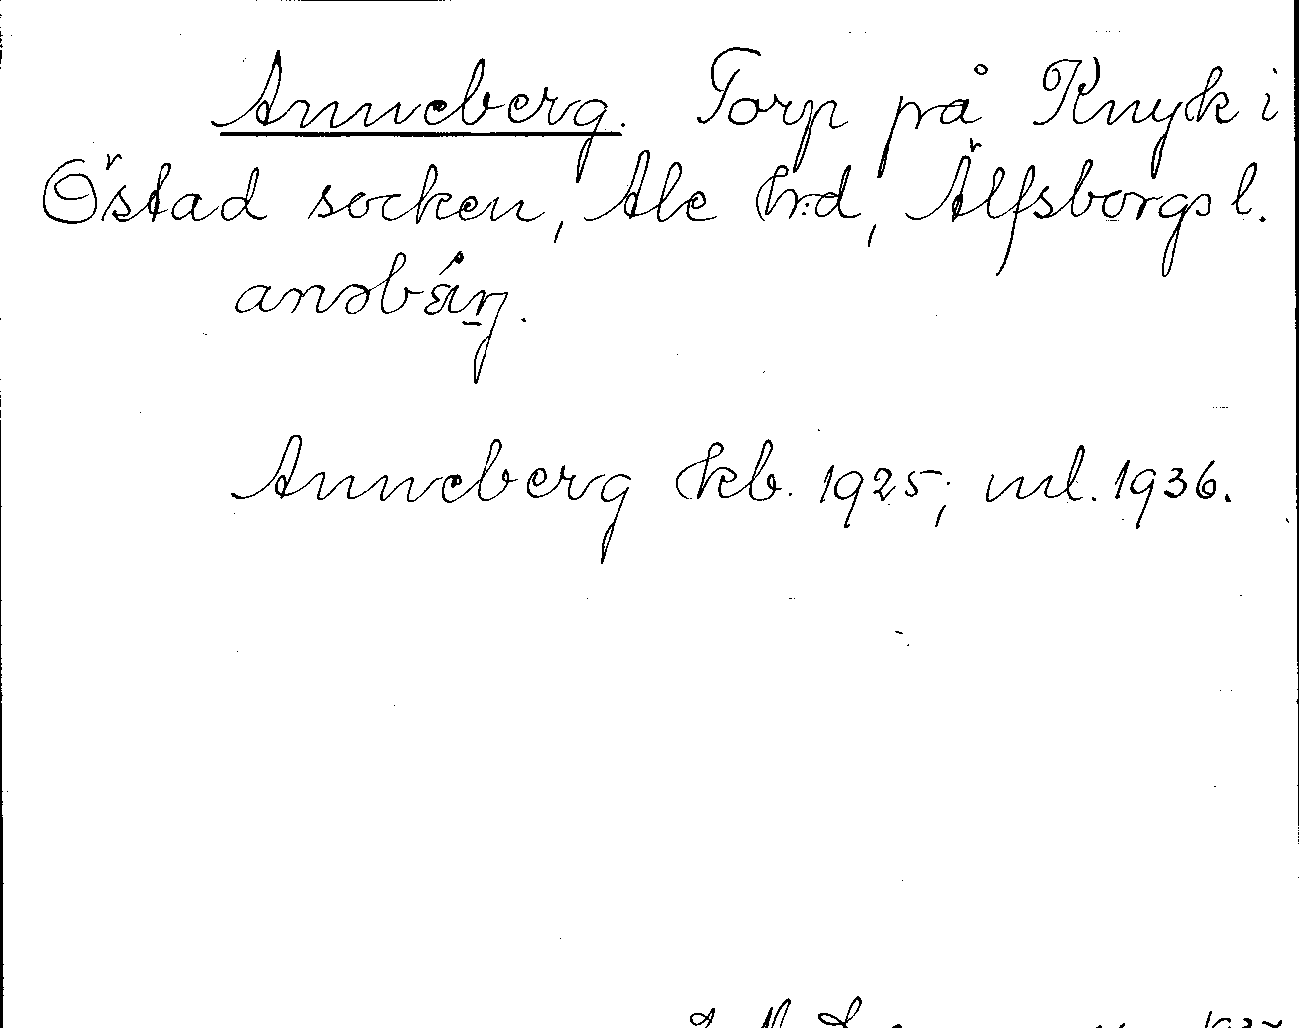 Anneberg. Torp på Knyk i
Östad socken, Ale hrd, Älfsborgs l.
Anneberg kb. 1925; ml. 1936.